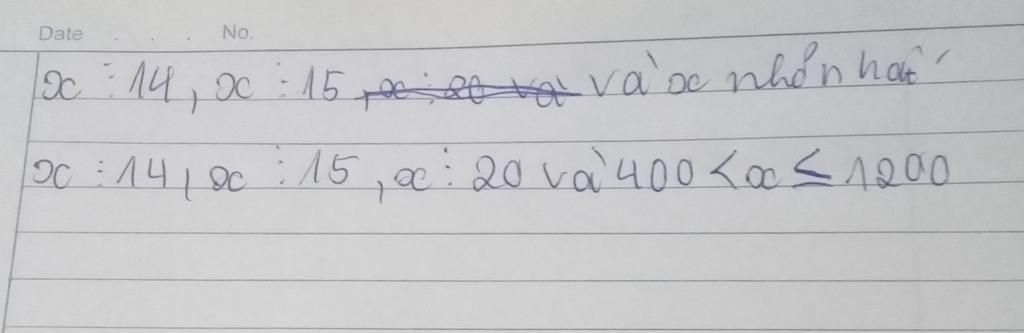 Date . . . No.
x ⋮ 14, x ⋮ 15 , x ⋮ 20 và và x nhỏ nhất
x ⋮ 14, x ⋮ 15, x ⋮ 20 và 400 < x ≤ 1200